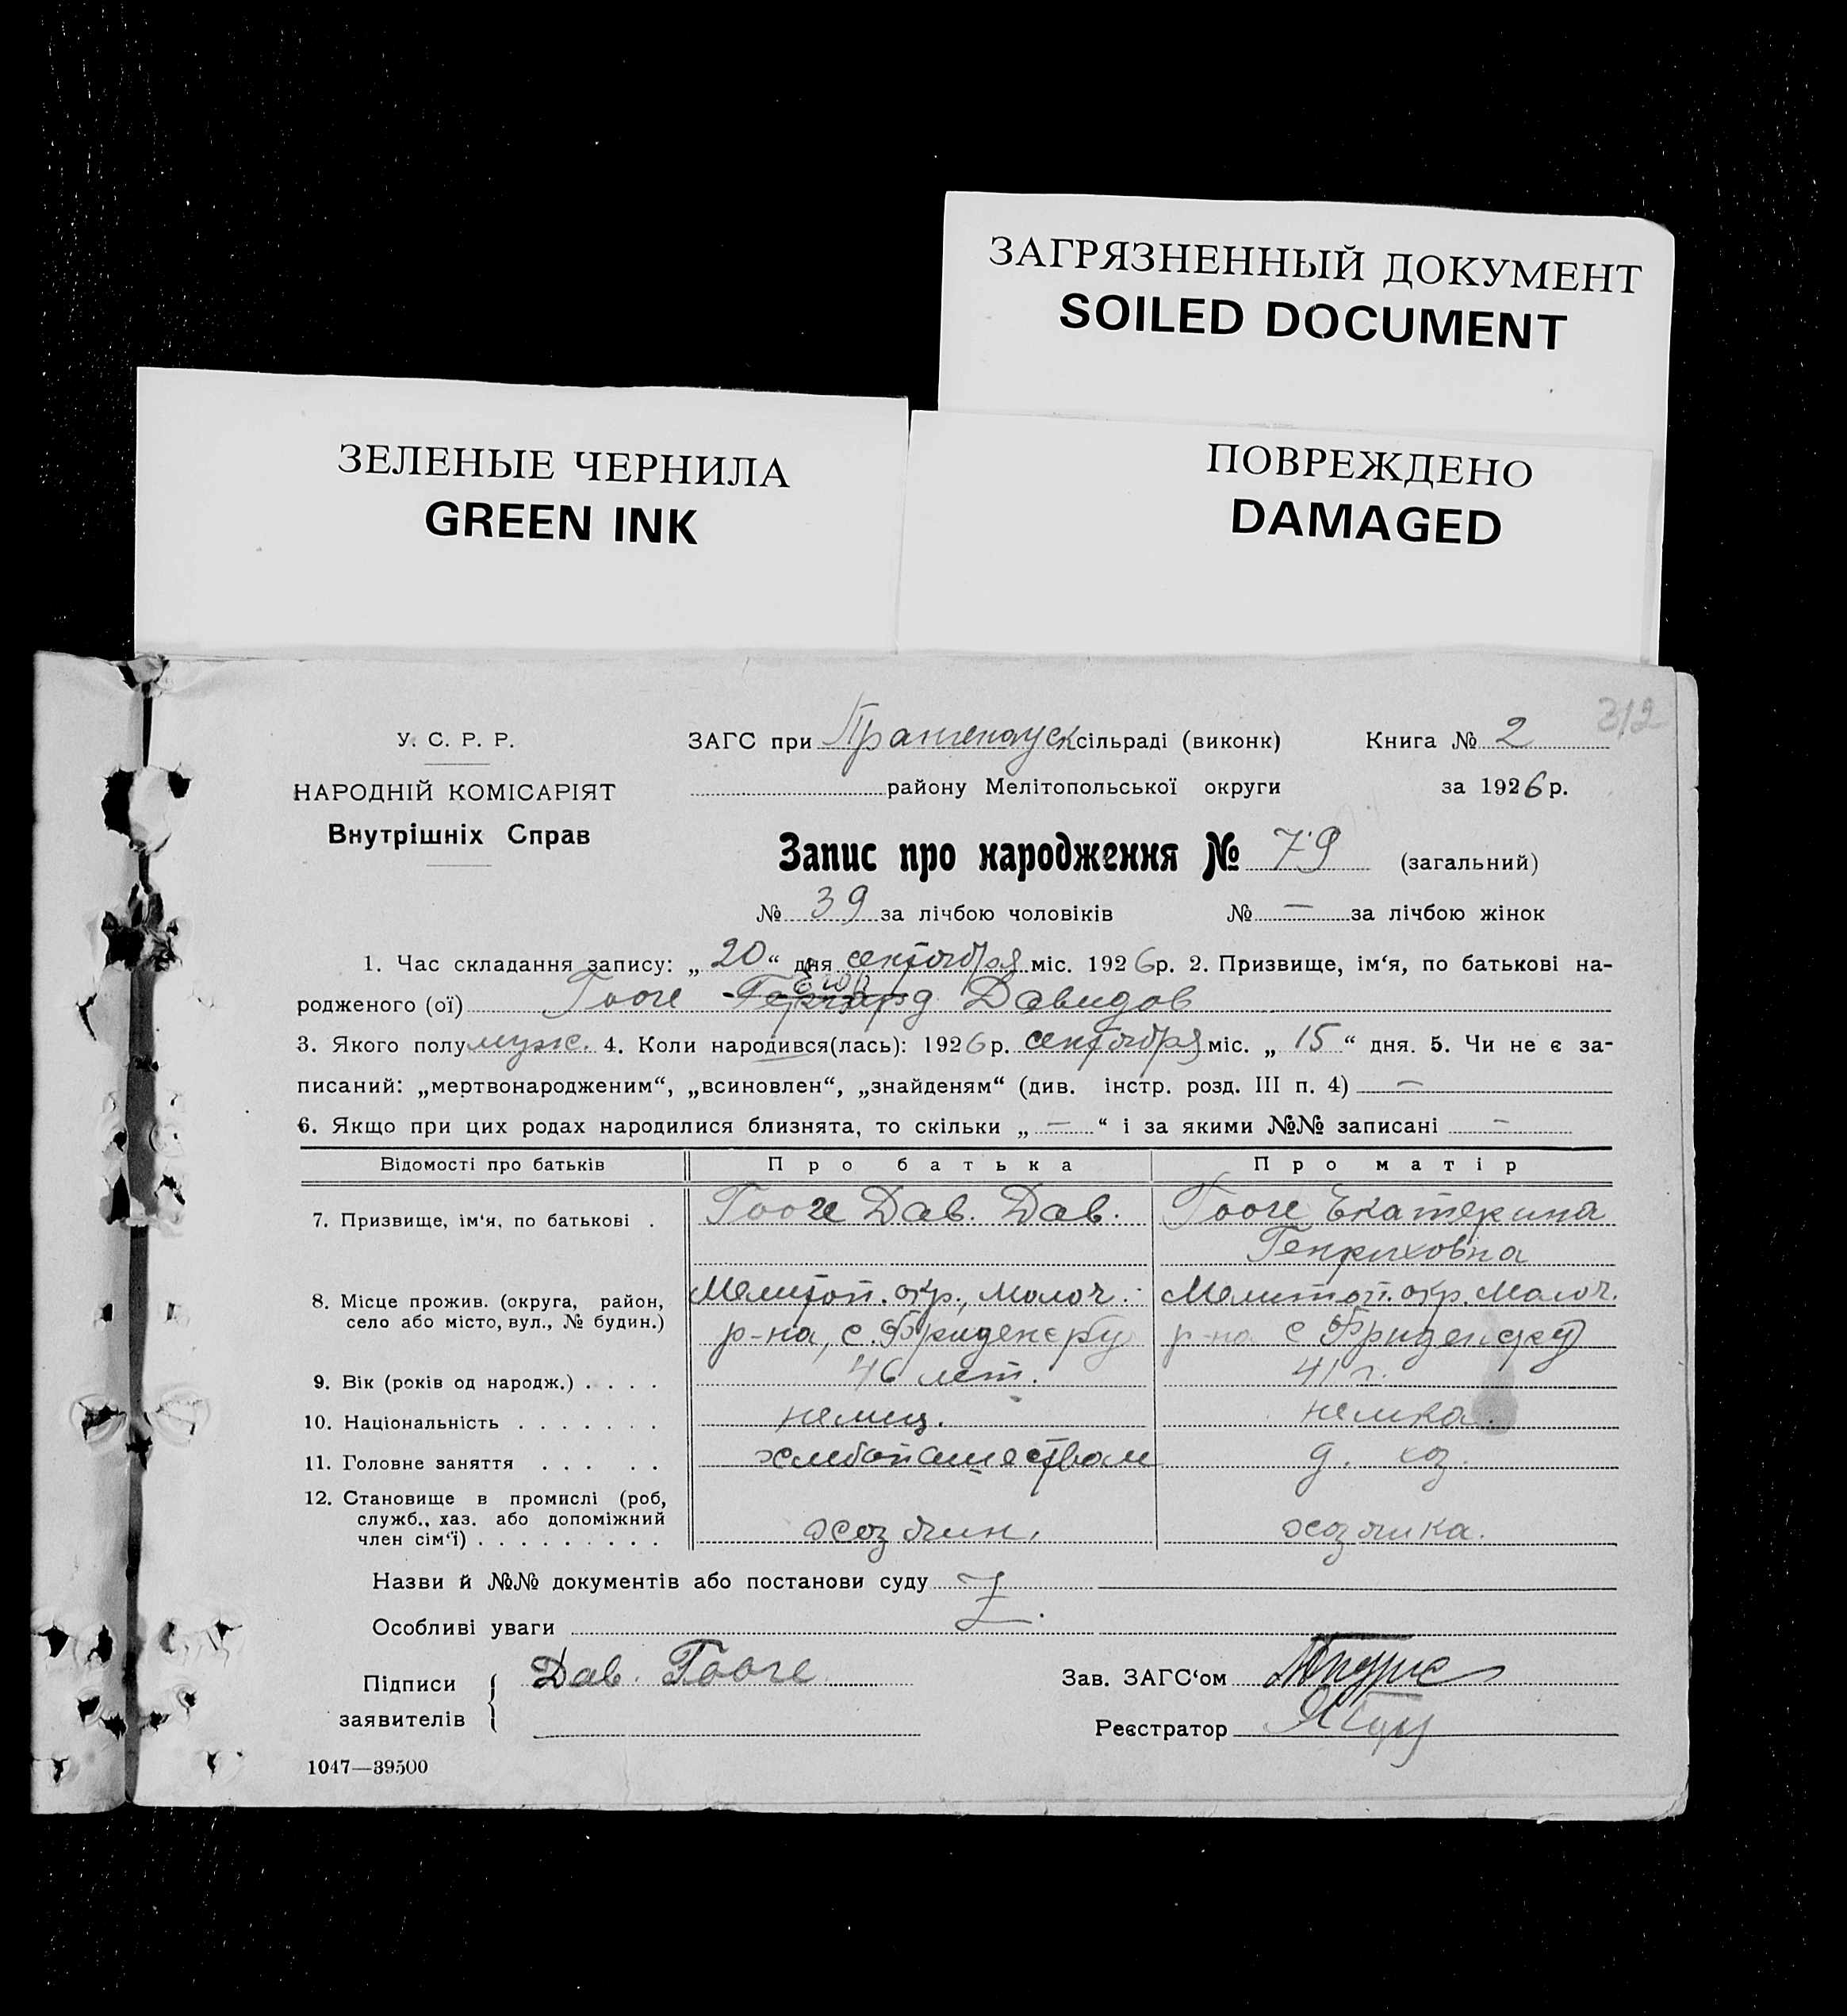 ЗАГРЯЗНЕННЫЙ ДОКУМЕНТ
SOILED DOCUMENT
ЗЕЛЕНЫЕ ЧЕРНИЛА
GREEN INK
ПОВРЕЖДЕНО
DAMAGED
312
У. С. Р. Р.
НАРОДНІЙ КОМІСАРІЯТ
Внутрішніх Справ
ЗАГС при сільраді (виконк) Книга № 2
району Мелітопольської округи за 1926 р.
Запис про народження № 79 (загальний)
№ 39 за лічбою чоловіків № — за лічбою жінок
1. Час складання запису: „ 20 “ дня сентября міс. 1926 р. 2. Призвище, ім‘я, по батькові на-
родженого (ої) Гооге Давидов
3. Якого полу муж. 4. Коли народився(лась): 1926 р. сентября міс. „ 15 “ дня. 5. Чи не є за-
писаний: „мертвонародженим“, „всиновлен“, „знайденям“ (див. інстр. розд. III п. 4) —
6. Якщо при цих родах народилися близнята, то скільки „ — “ і за якими №№ записані —
Відомості про батьків Про батька Про матір
7. Призвище, ім‘я, по батькові . Гооге Дав. Дав. Гооге Екатерина
Генриховна
8. Місце прожив. (округа, район,
село або місто, вул., № будин.)
Мелитоп. окр., Молоч. Мелитоп. окр. Молоч.
р-на, с. р-на с
9. Вік (років од народж.) . . . . 46 лет. 41 г.
10. Національність . . . . . . . немец. немка.
11. Головне заняття . . . . . хлебопашеством д. хоз.
12. Становище в промислі (роб,
служб., хаз. або допоміжний
член сім‘ї) . . . . . . . . . хозяин. хозяйка.
Назви й №№ документів або постанови суду
Особливі уваги
Підписи
заявителів
Дав. Гооге
Зав. ЗАГС‘ом
Реєстратор
1047—39500